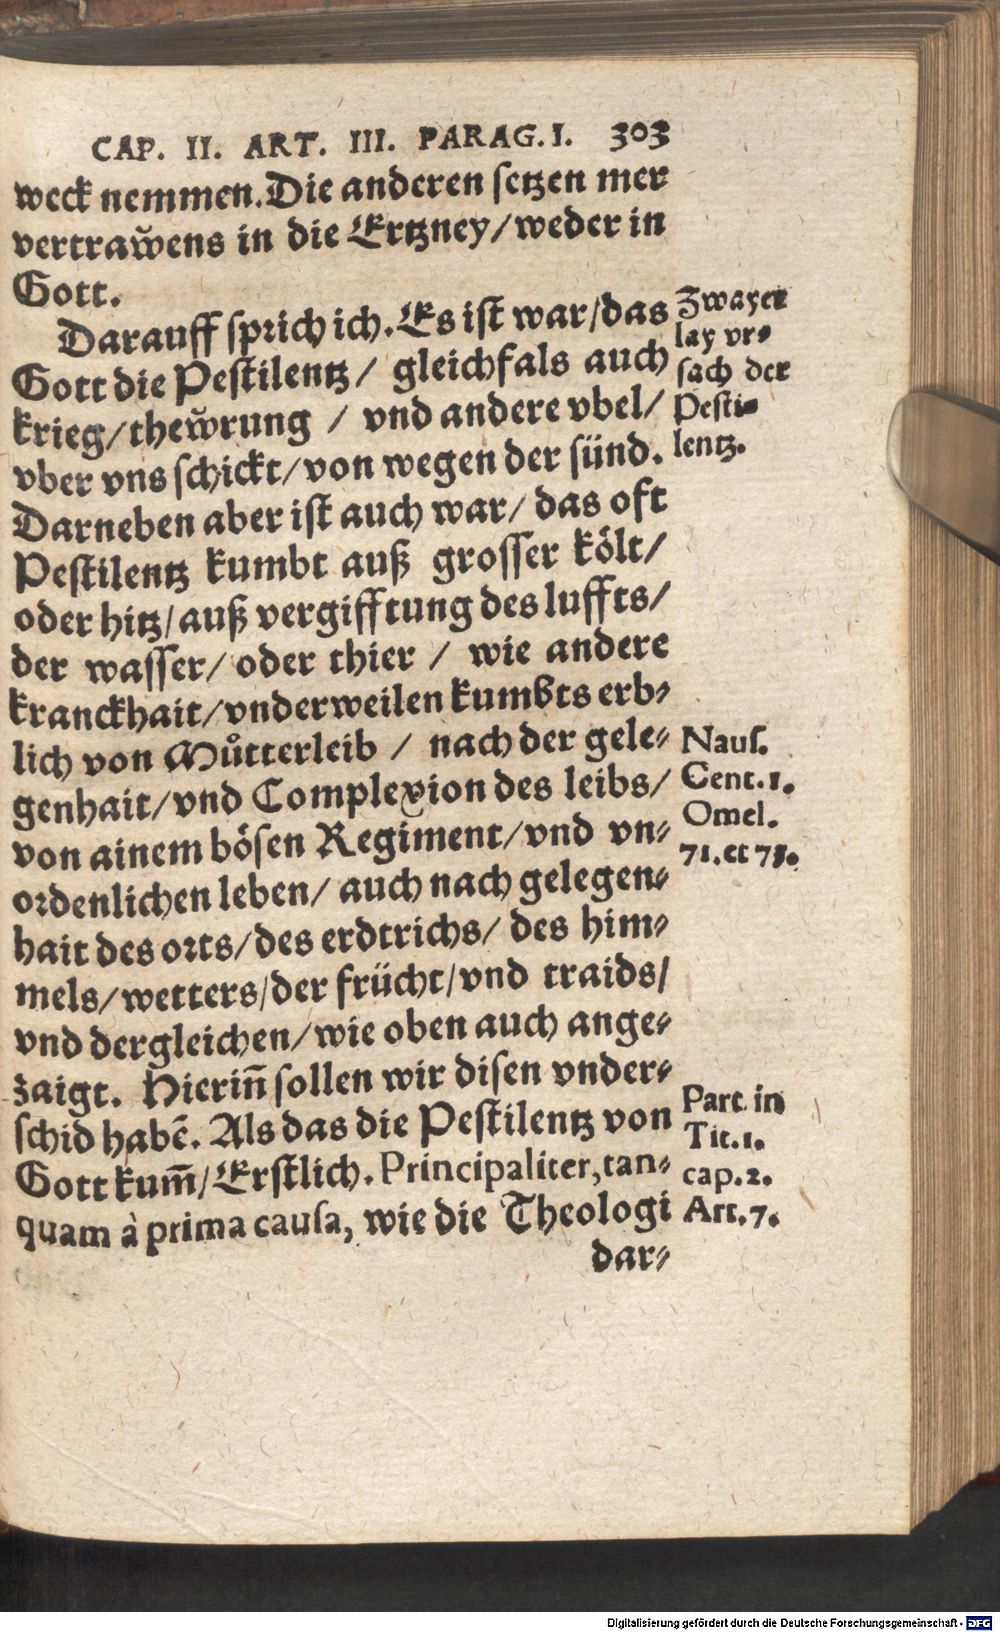 CAP. II. ART. III. PARAG. I. 303
weck nemmen. Die anderen setzen mer
vertraw̆ens in die Ertzney/ weder in
Gott.
Darauff sprich ich. Es ist war/ das
Gott die Pestilentz/ gleichfals auch
krieg/ thew̆rung / vnd andere vbel/
vber vns schickt/ von wegen der sünd.
Darneben aber ist auch war/ das oft
Pestilentz kumbt auß grosser költ/
oder hitz/ auß vergifftung des luffts/
der wasser/ oder thier / wie andere
kranckhait/ vnderweilen kumbts erb-
lich von Můtterleib / nach der gele-
genhait/ vnd Complexion des leibs/
von ainem bösen Regiment/ vnd vn-
ordenlichen leben/ auch nach gelegen-
hait des orts/ des erdtrichs/ des him-
mels/ wetters/ der frücht/ vnd traids/
vnd dergleichen/ wie oben auch ange-
zaigt. Hieriñ sollen wir disen vnder-
schid habẽ. Als das die Pestilentz von
Gott kum̃/ Erstlich. Principaliter, tan-
quam à prima causa, wie die Theologi
dar-
Zwayer
lay vr-
sach der
Pesti-
lentz.
Naus.
Cent. 1.
Omel.
71. et 75.
Part. in
Tit. 1.
cap. 2.
Art. 7.
Digitalisierung gefördert durch die Deutsche Forschungsgemeinschaft - DFG